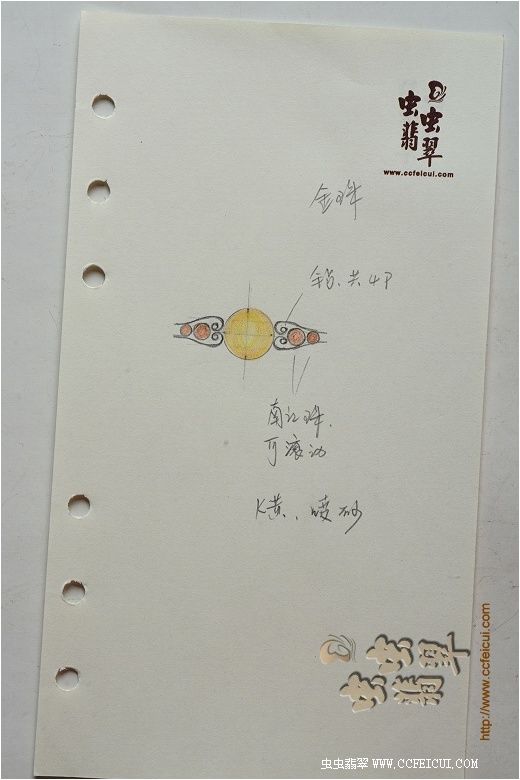 虫虫翡翠
www.ccfeicui.com
金珠
共4P
南红珠.
可滚动
K黄、喷砂
虫虫翡翠
http://www.ccfeicui.com
虫虫翡翠 WWW.CCFEICUI.COM